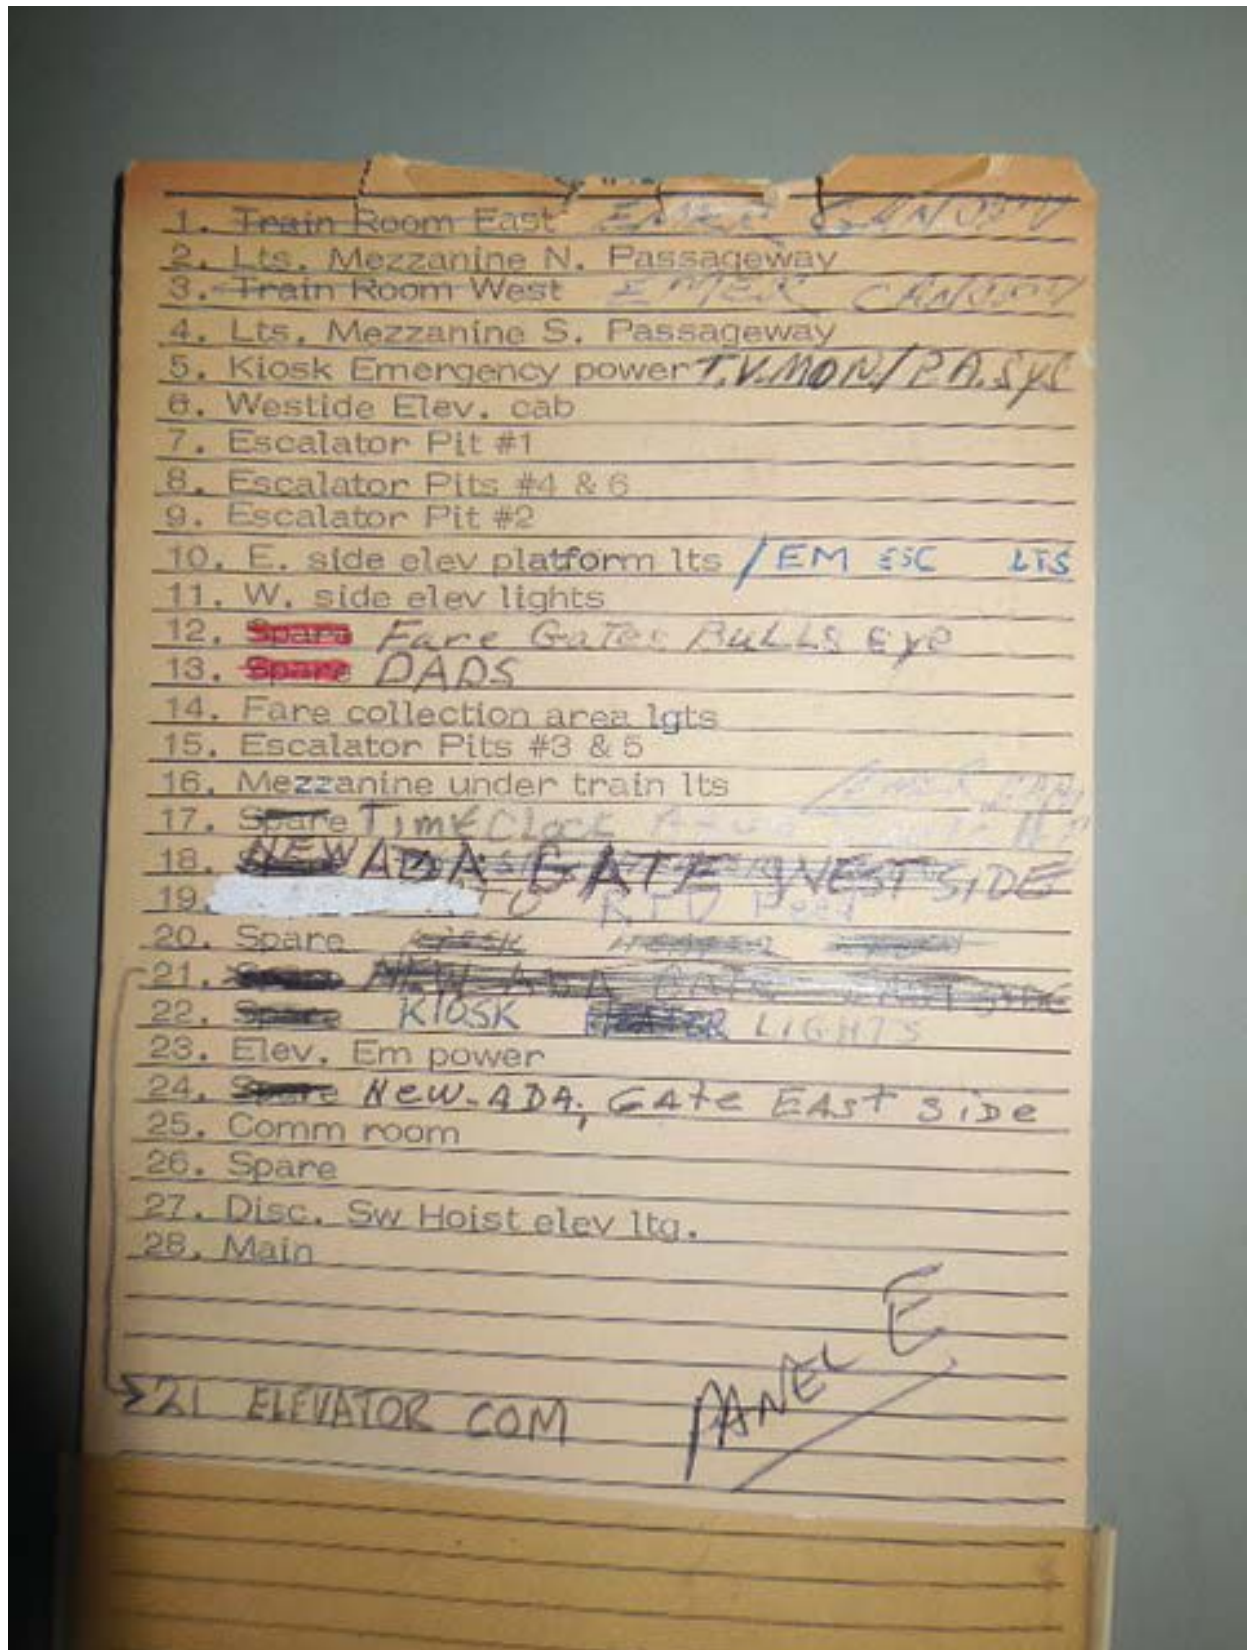 1. Train Room East EMER CANOPY
2. Lts. Mezzanine N. Passageway
3. Train Room West EMER CANOPY
4. Lts. Mezzanine S. Passageway
5. Kiosk Emergency power T.V.MON/P.A.SYS
6. Westide Elev. cab
7. Escalator Pit #1
8. Escalator Pits #4 & 6
9. Escalator Pit #2
10. E. side elev platform lts / EM ESC LTS
11. W. side elev lights
12. Spare Fare Gates BULLS EYe
13. Spare DADS
14. Fare collection area lgts
15. Escalator Pits #3 & 5
16. Mezzanine under train lts EMER
17. Spare TimE Clock
18. NEW ADA GATE WEST SIDE
19. RTU Feed
20. Spare KIOSK HEATER
21. NEW ADA GATE EAST SIDE
22. Spare KIOSK HEATER LIGHTS
23. Elev. Em power
24. Spare New-ADA, GAte EASt SiDe
25. Comm room
26. Spare
27. Disc. Sw Hoist elev ltg.
28. Main
21 ELEVATOR COM
PANEL E